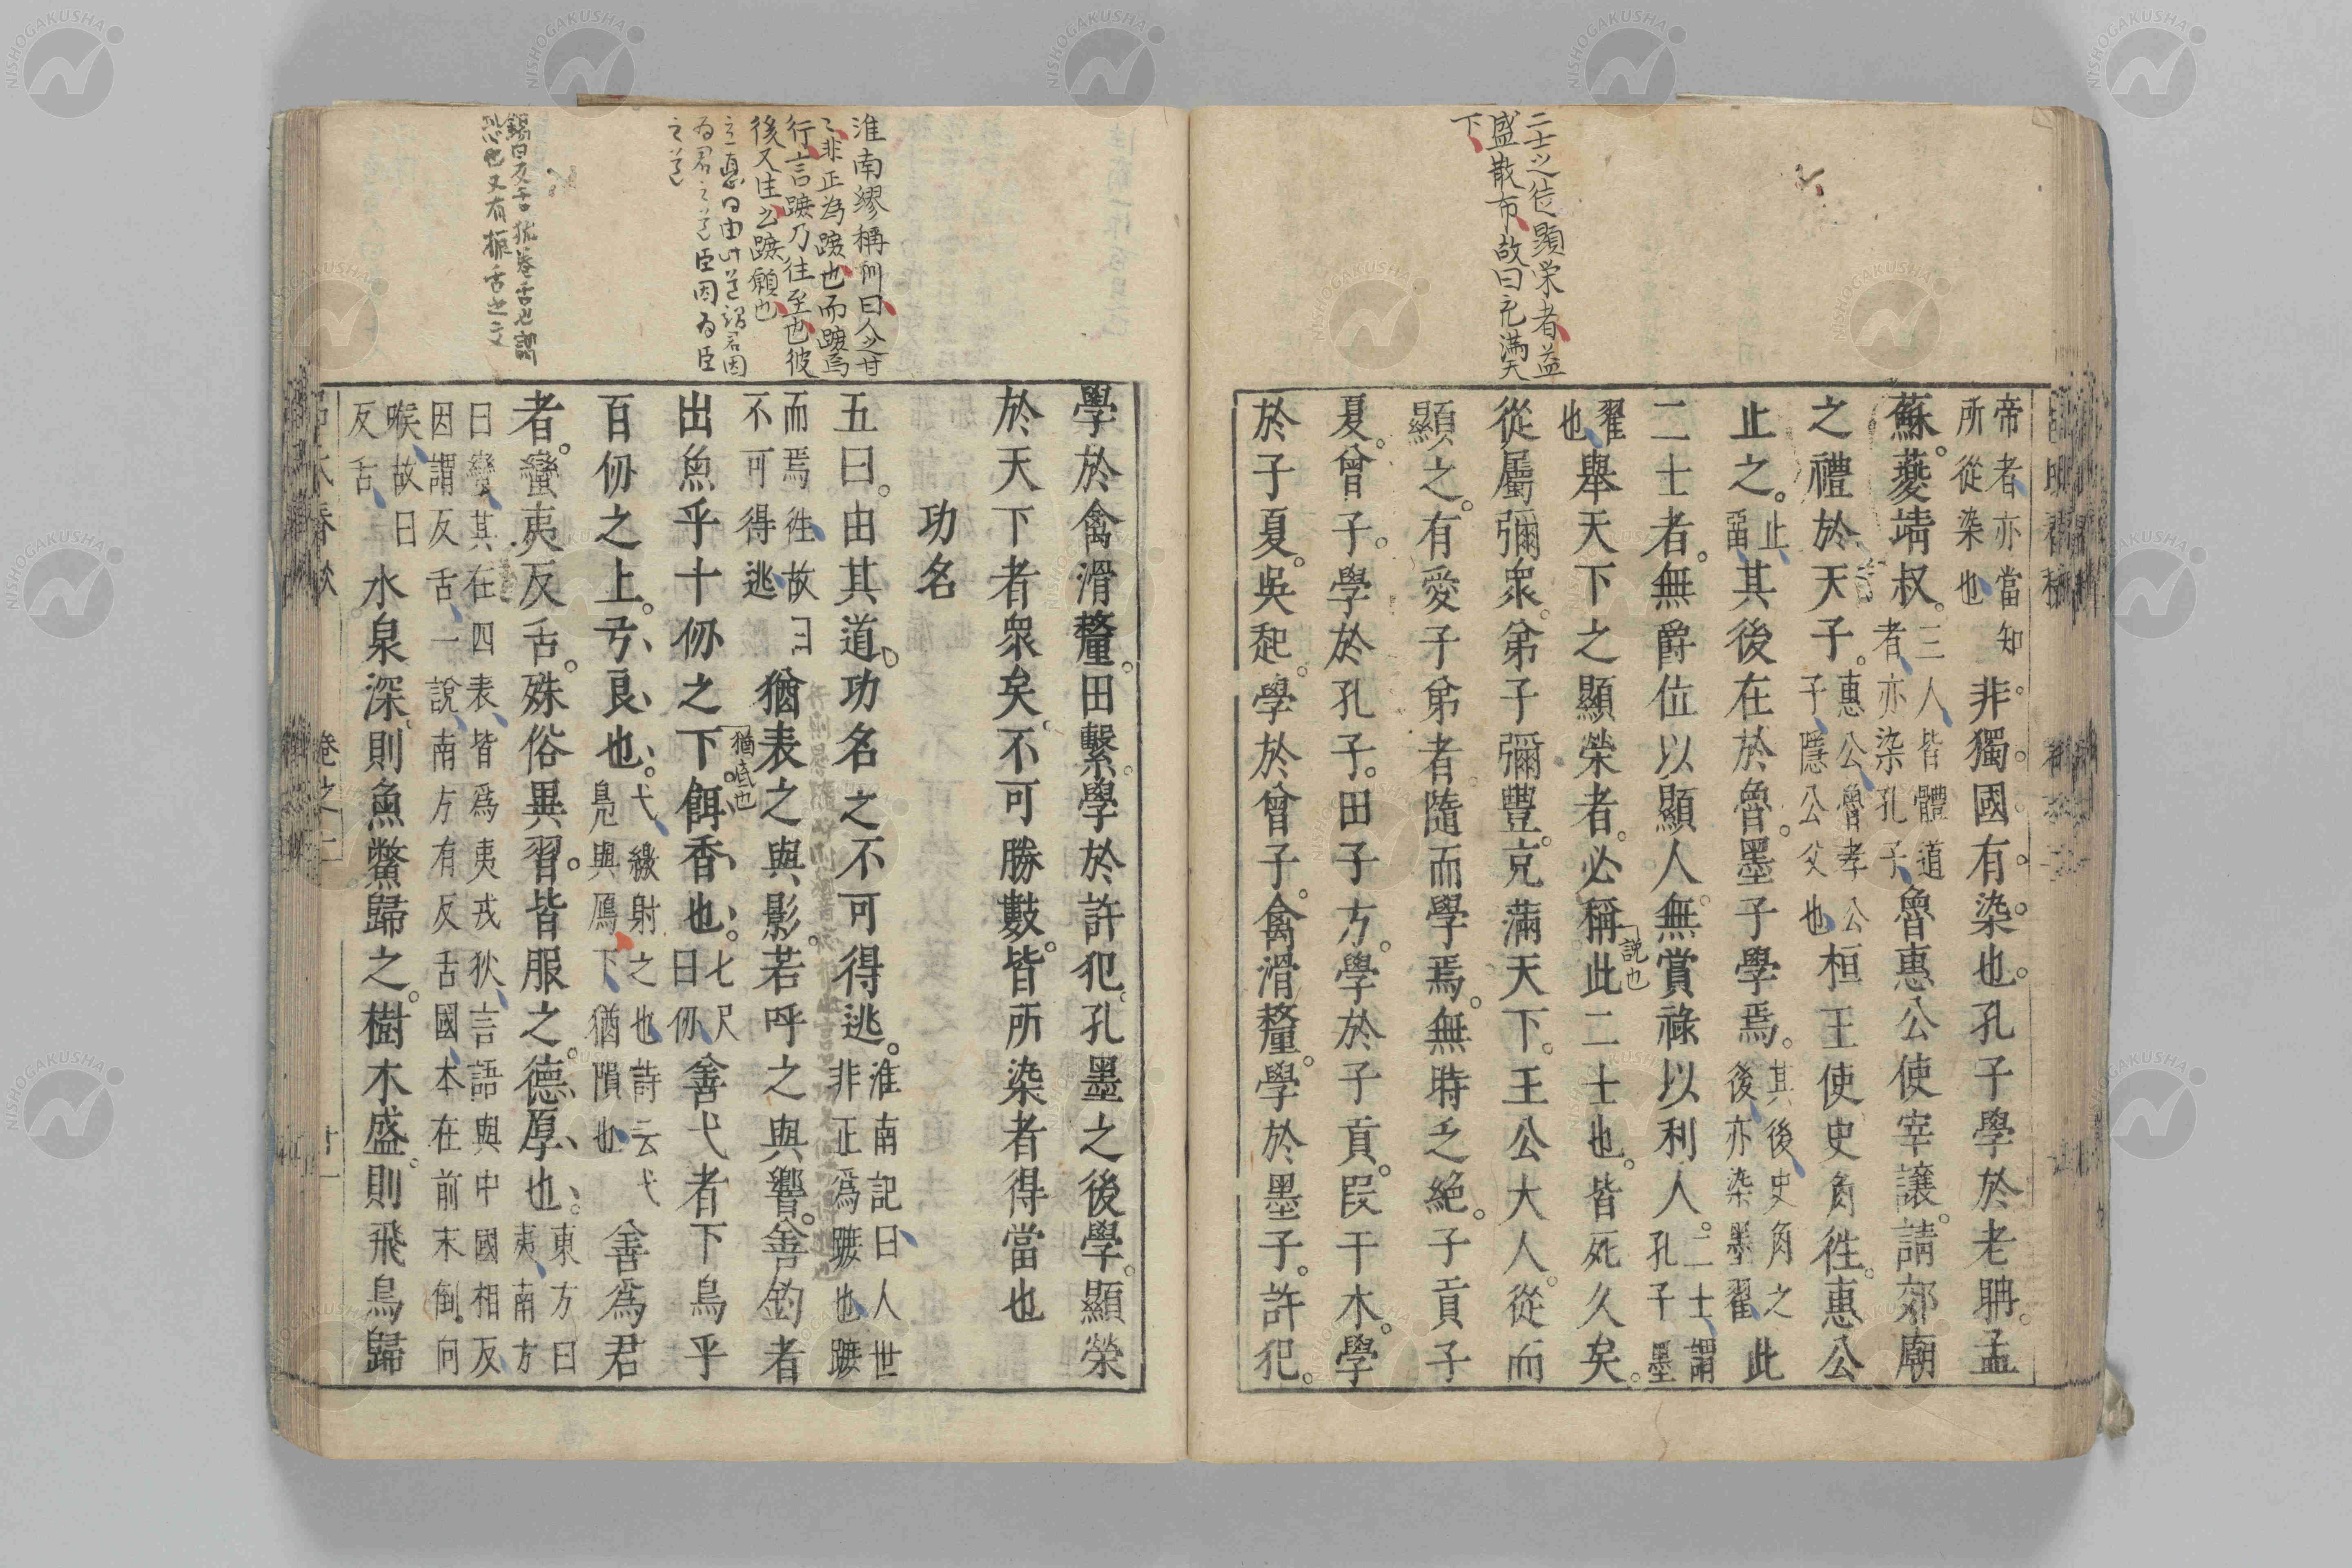 二士之位顯栄者益
盛散布故曰充滿天
下
帝者亦當知
所從染也
非獨國有染也孔子學於老聃孟
蘇夔靖叔
三人皆體道
者亦染孔子
魯惠公使宰讓請郊廟
之禮於天子
惠公魯孝公
子隱公父也
桓王使史角徃惠公
止之
止
畱
其後在於魯墨子學焉
其後史角之
後亦染墨翟
此
二士者無爵位以顯人無賞祿以利人
二士謂
孔子墨
翟
也
舉天下之顯榮者必稱此二士也皆死久矣
説也
從屬彌衆弟子彌豐充滿天下王公大人從而
顯之有愛子弟者隨而學焉無時乏絕子貢子
夏曾子學於孔子田子方學於子貢段干木學
於子夏吳起學於曾子禽滑釐學於墨子許犯
淮南繆稱訓曰人之甘
甘非正為蹠也而蹠焉
行言蹠乃往至也彼
後又注云蹠願也
為君之道臣因為臣
之道
學於禽滑釐田繫學於許犯孔墨之後學顯榮
於天下者衆矣不可勝數皆所染者得當也
功名
五曰由其道功名之不可得逃
淮南記曰人世
非正爲蹠也蹠
而焉徃故曰
不可得逃
猶表之與影若呼之與響善釣者
出魚乎十仞之下餌香也
猶底也
七尺
曰仞
善弋者下鳥乎
百仞之上弓良也
弋繳射之也詩云弋
鳧與鴈下猶隕也
善爲君
者蠻夷反舌殊俗異習皆服之德厚也
東方曰
夷南方
曰蠻其在四表皆爲夷戎狄言語與中國相反
因謂反舌一說南方有反舌國本在前末倒向
喉故曰
反舌
水泉深則魚鱉歸之樹木盛則飛鳥歸
卷之二